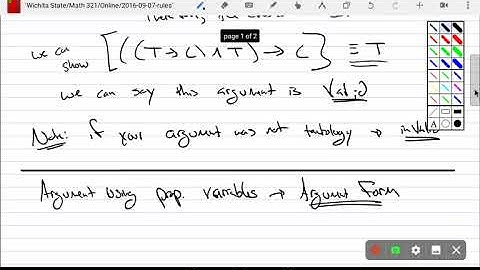 Wichita State/Math 321/Online/2016-09-07-rules
page 1 of 2
we can show [((T→C)∧T)→C] ≡ T
we can say this argument is Valid
Note: if your argument was not tautology → invalid
Argument using prop. variables → Argument Form